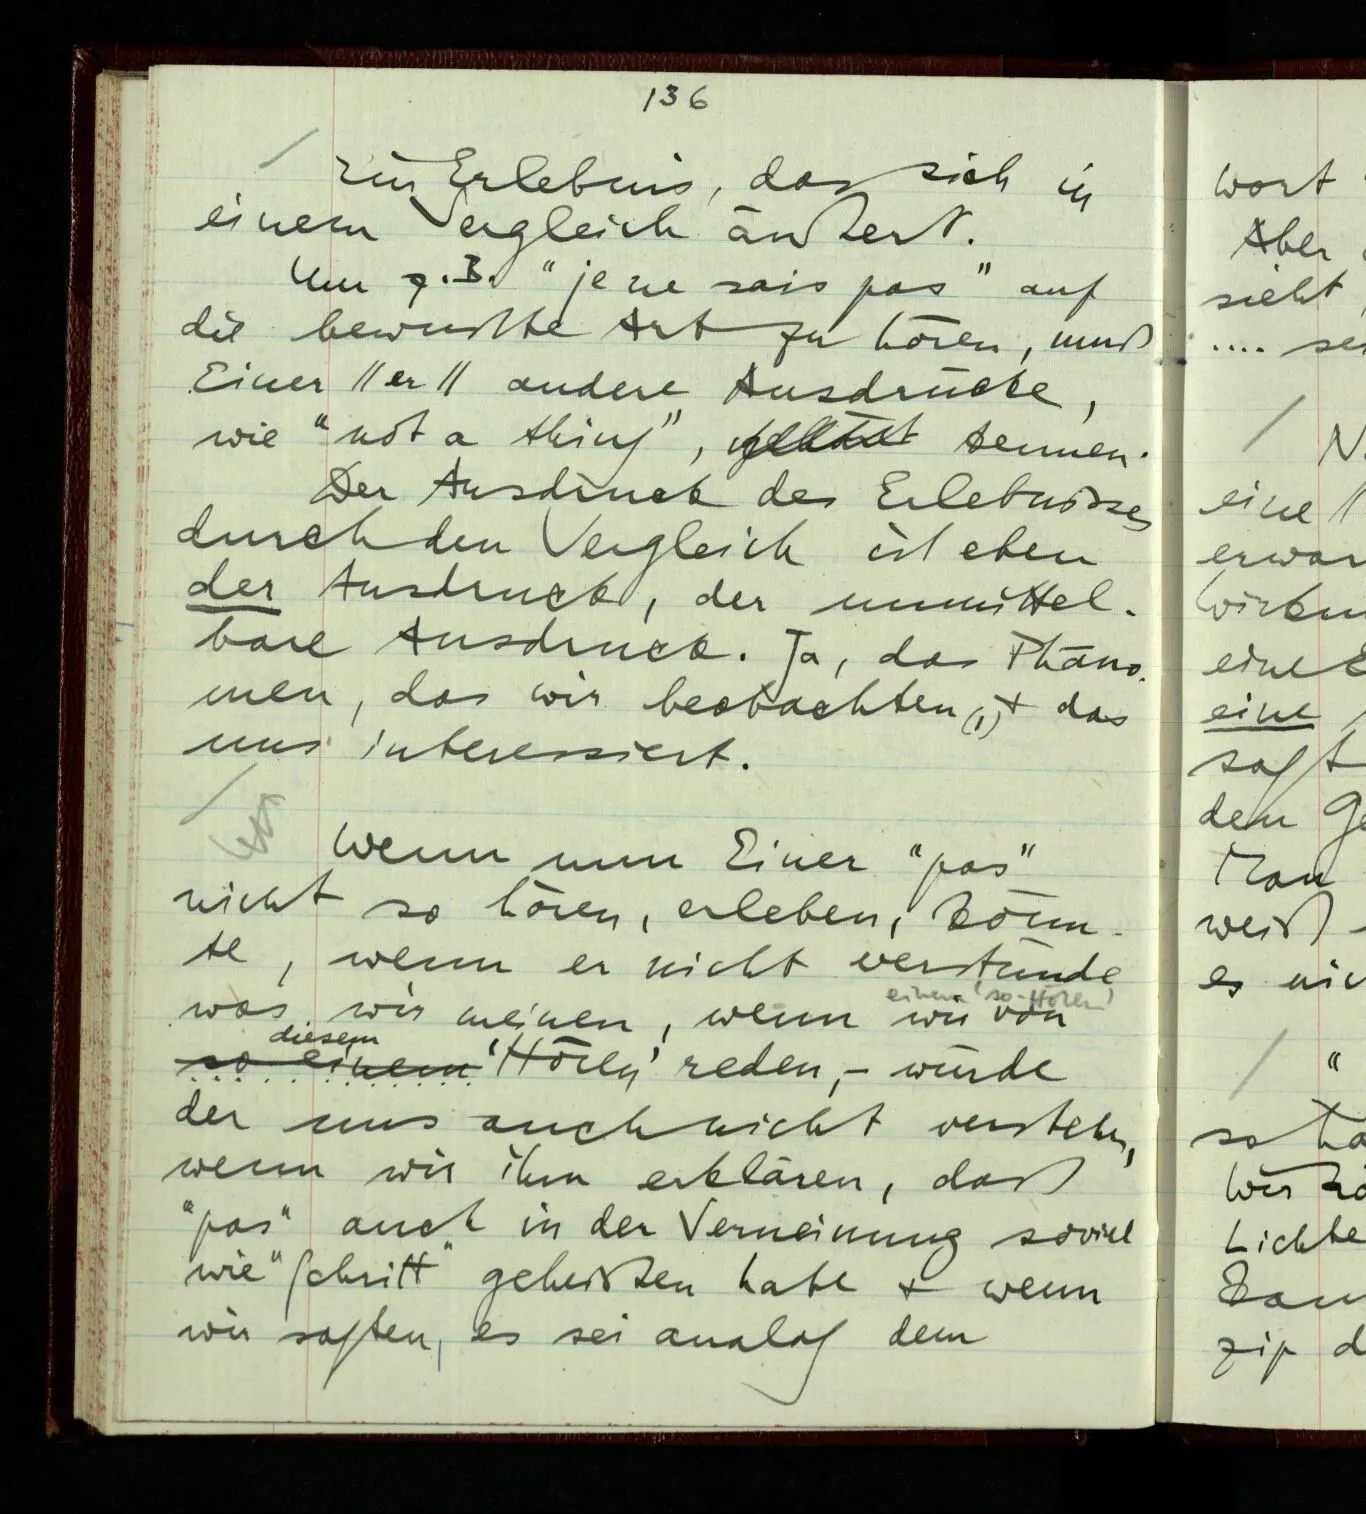 136
Ein Erlebnis, das sich in
einem Vergleich äußert.
Um z.B. "je ne sais pas" auf
die bewußte Art zu hören, muß
Einer // er // andere Ausdrücke,
wie "not a thing", kennen.
Der Ausdruck des Erlebnisses
durch den Vergleich ist eben
der Ausdruck, der unmittel-
bare Ausdruck. Ja, das Phäno-
men, das wir beobachten(,) + das
uns interessiert.
Wenn nun Einer "pas"
nicht so hören, erleben, könn-
te, wenn er nicht verstünde
einem 'so-Hören'
was wir meinen, wenn wir von
diesem
so einem 'Hören' reden, – würde
der uns auch nicht verstehen,
wenn wir ihm erklären, daß
"pas" auch in der Verneinung soviel
wie "Schritt" geheißen habe + wenn
wir sagten, es sei analog dem
wort
Aber
sieht
.... sei
eine //
erwar
eine
eine
sagt
den Ge
Man
weiß
es nic
"
so ha
Wir kö
Lichte
kan
zip d